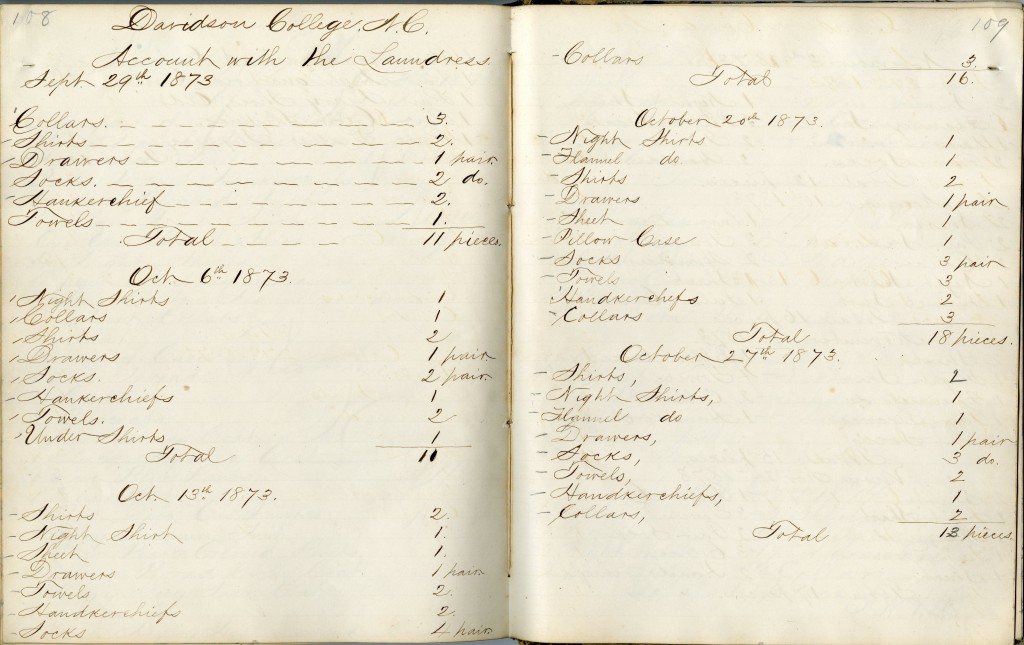 108
Davidson College, N.C.
Account with the Laundress.
Sept. 29th 1873
Collars. 3.
Shirts 2.
Drawers 1 pair.
Socks. 2 do.
Hankerchief 2.
Towels 1.
Total 11 pieces.
Oct. 6th 1873.
Night Shirts 1
Collars 1
Shirts 2
Drawers 1 pair.
Socks. 2 pair.
Hankerchiefs 1
Towels. 2
Under Shirts 1
Total 11
Oct. 13th 1873.
Shirts 2.
Night Shirt 1.
Sheet 1.
Drawers 1 pair.
Towels 2.
Handkerchiefs 2.
Socks 4 pair.
109
Collars 3.
Total 16.
October 20th 1873.
Night Shirts 1
Flannel do 1
Shirts 2
Drawers 1 pair
Sheet 1
Pillow Case 1
Socks 3 pair
Towels 3
Handkerchefs 2
Collars 3
Total 18 pieces.
October 27th 1873.
Shirts, 2
Night Shirts, 1
Flannel do 1
Drawers, 1 pair
Socks, 3 do.
Towels, 2
Handkerchiefs, 1
Collars, 2
Total 13 pieces